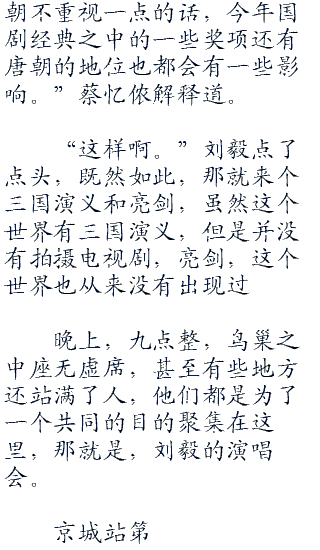 朝不重视一点的话，今年国
剧经典之中的一些奖项还有
唐朝的地位也都会有一些影
响。”蔡忆侬解释道。
“这样啊。”刘毅点了
点头，既然如此，那就来个
三国演义和亮剑，虽然这个
世界有三国演义，但是并没
有拍摄电视剧，亮剑，这个
世界也从来没有出现过
晚上，九点整，鸟巢之
中座无虚席，甚至有些地方
还站满了人，他们都是为了
一个共同的目的聚集在这
里，那就是，刘毅的演唱
会。
京城站第